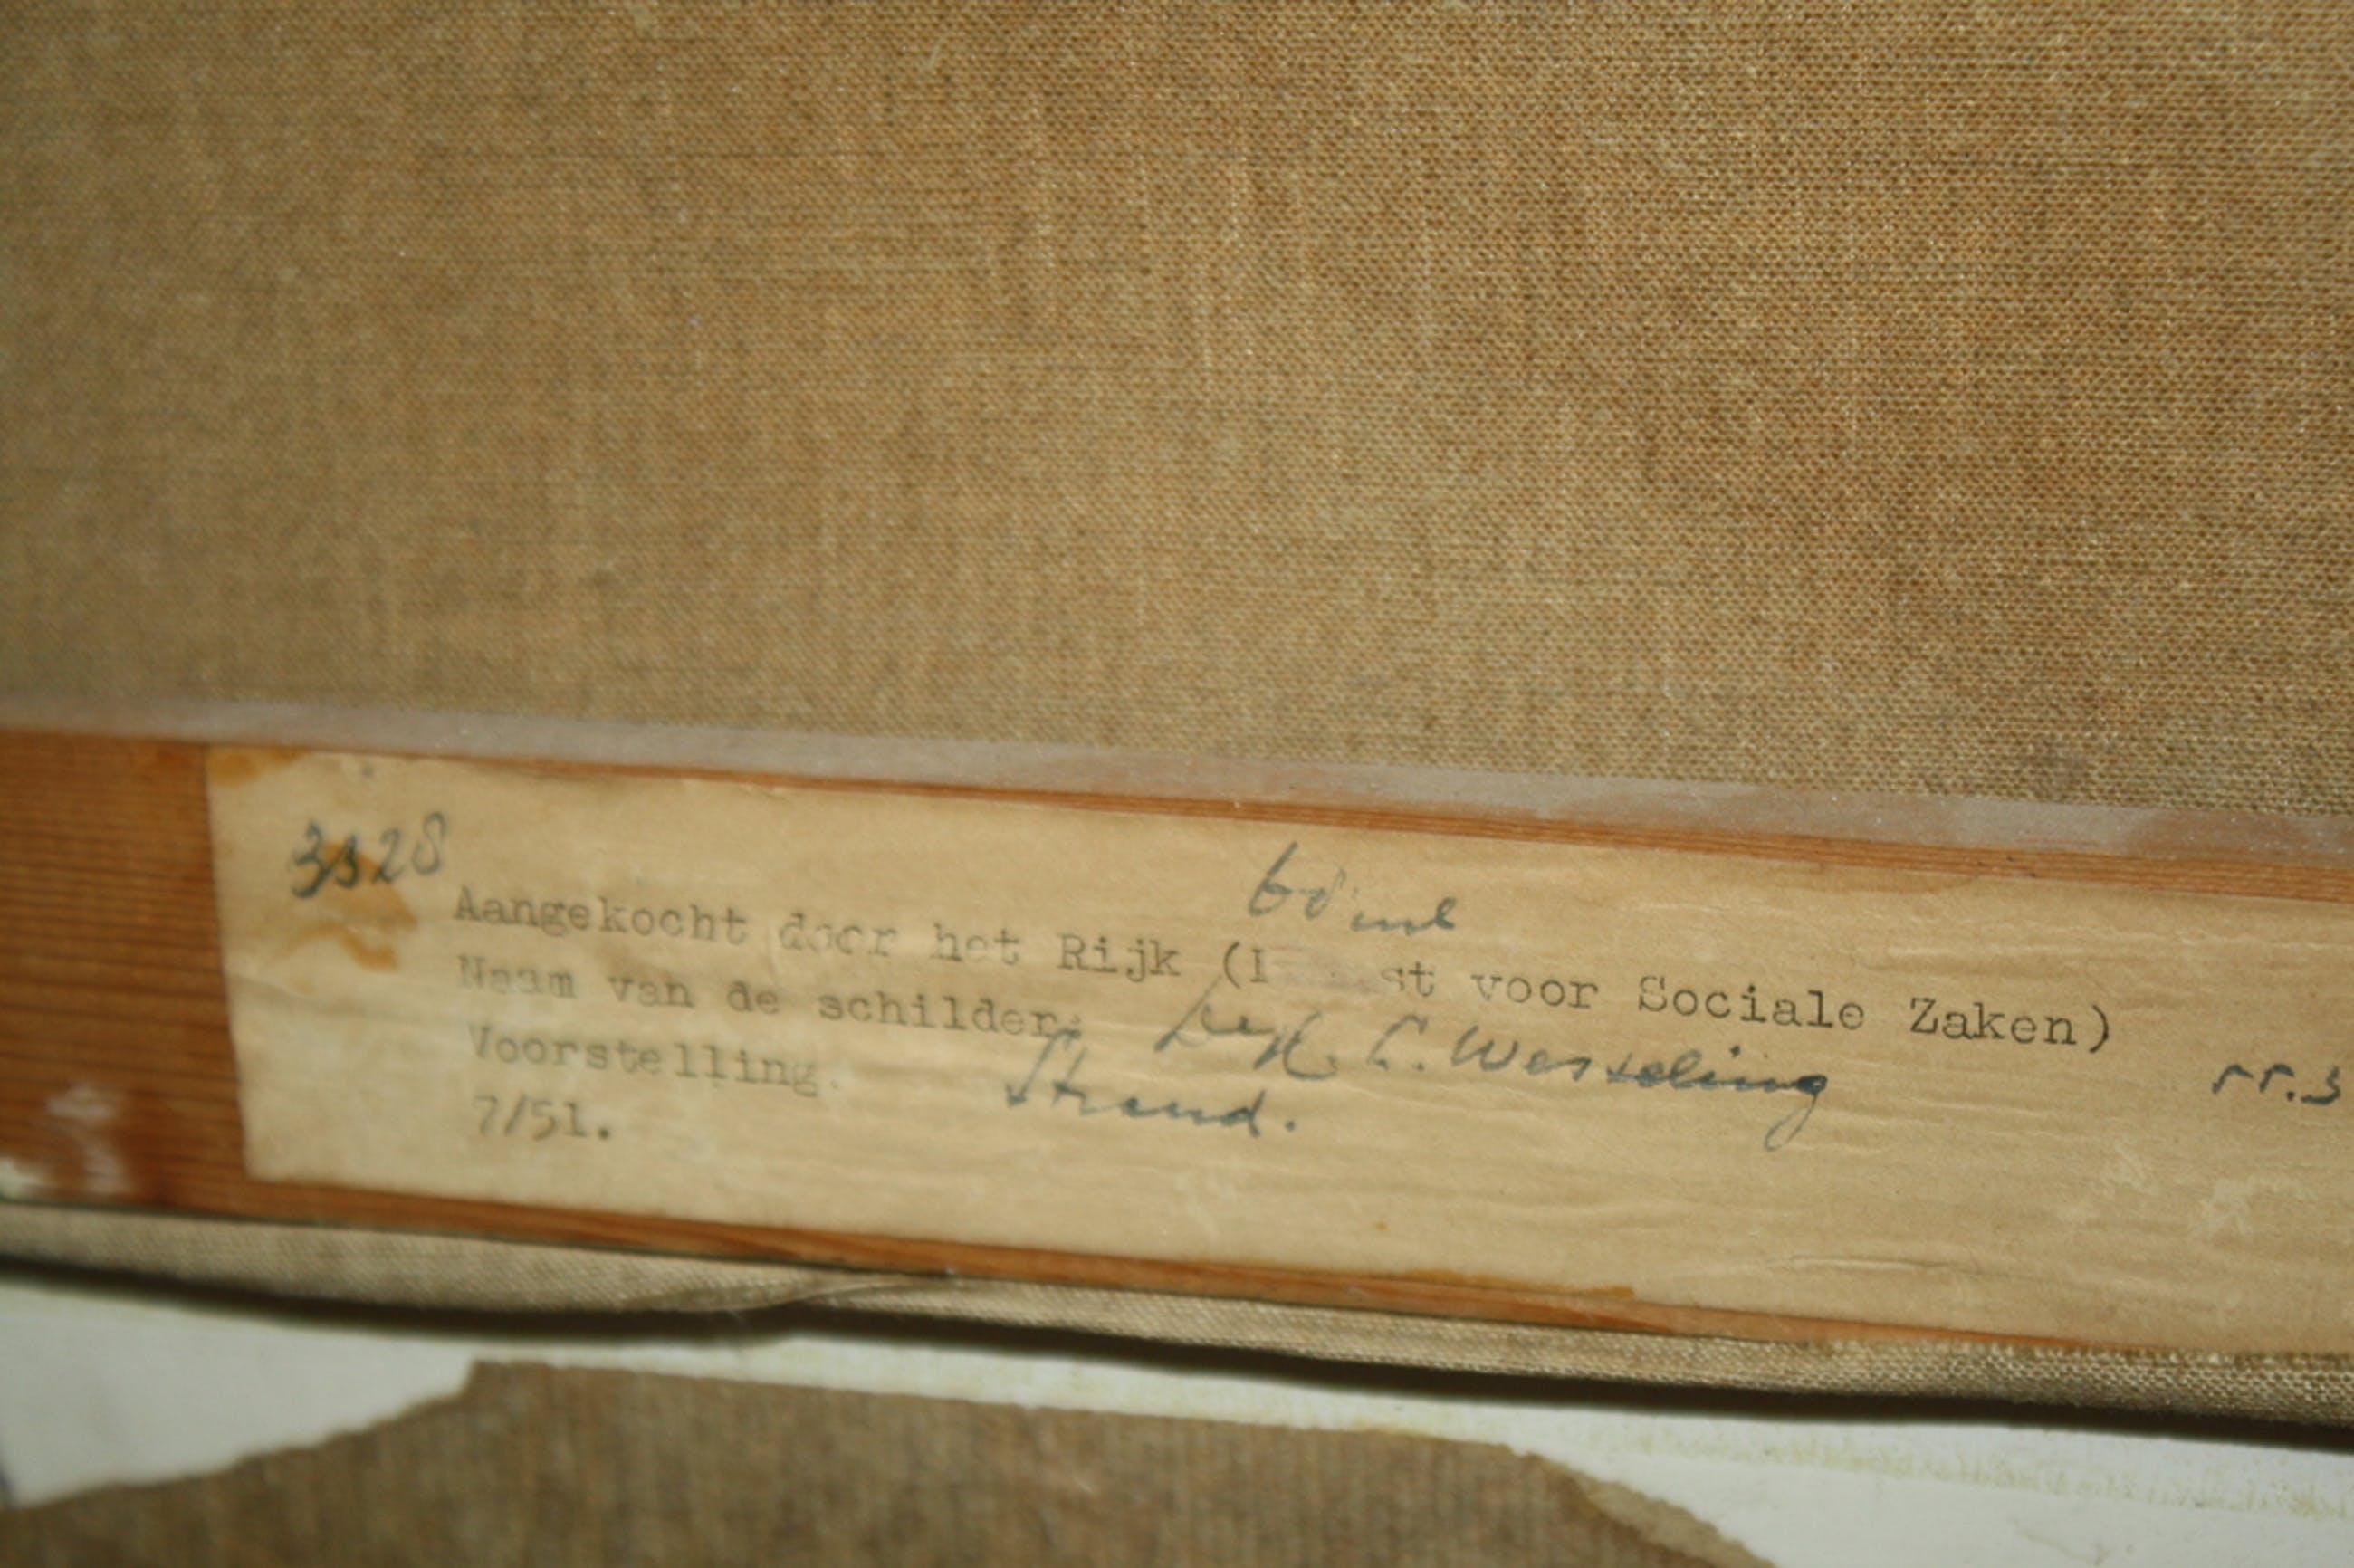 3328
Aangekocht door het Rijk ( st voor Sociale Zaken)
Naam van de schilder: C. Wesseling
Voorstelling. Strand.
7/51.